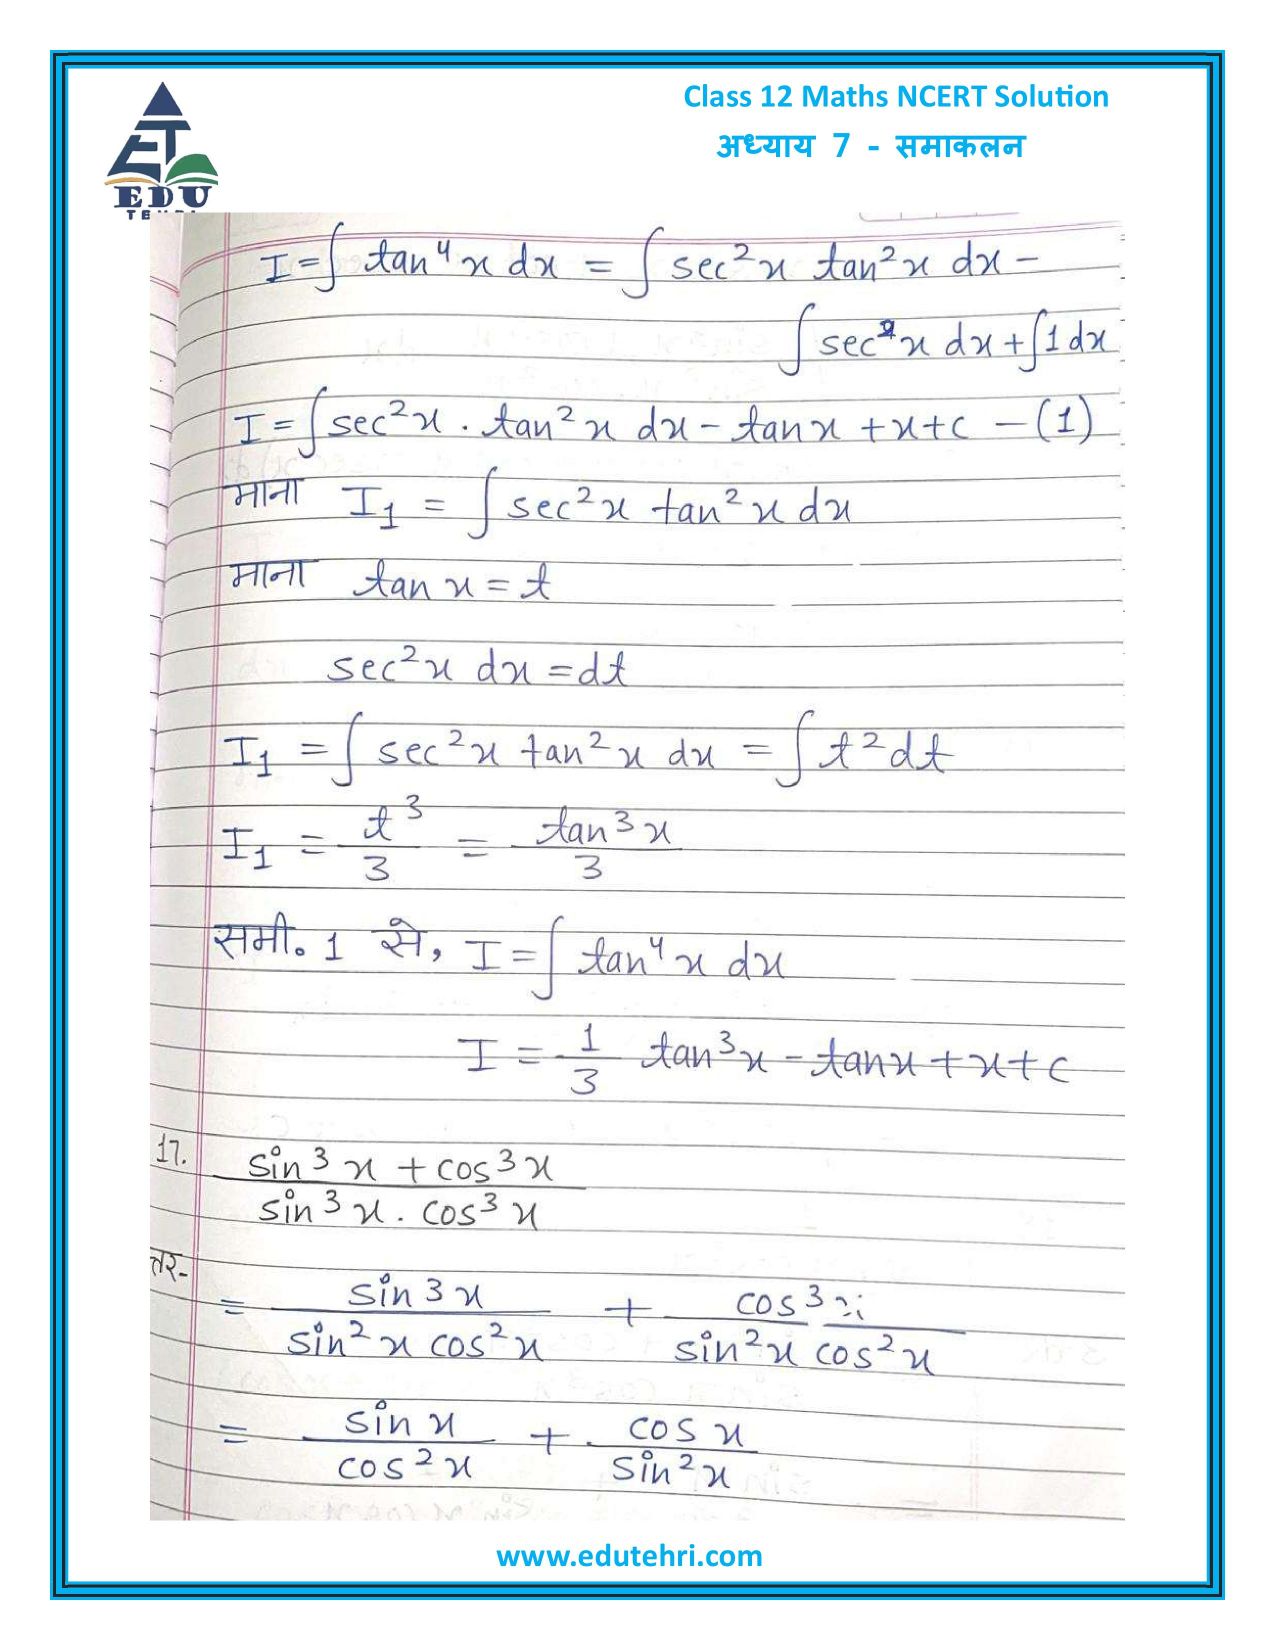 Class 12 Maths NCERT Solution
अध्याय 7 - समाकलन
EDU
TEHRI
I = ∫ tan⁴x dx = ∫ sec²x tan²x dx -
∫ sec²x dx + ∫1 dx
I = ∫ sec²x . tan²x dx - tanx + x + c - (1)
माना I₁ = ∫ sec²x tan²x dx
माना tan x = t
sec²x dx = dt
I₁ = ∫ sec²x tan²x dx = ∫ t² dt
I₁ = t³/3 = tan³x/3
समी. 1 से, I = ∫ tan⁴x dx
I = 1/3 tan³x - tanx + x + c
17. sin³x + cos³x
sin³x . cos³x
त्तर-
= sin3x/sin²x cos²x + cos³x/sin²x cos²x
= sin x/cos²x + cos x/sin²x
www.edutehri.com